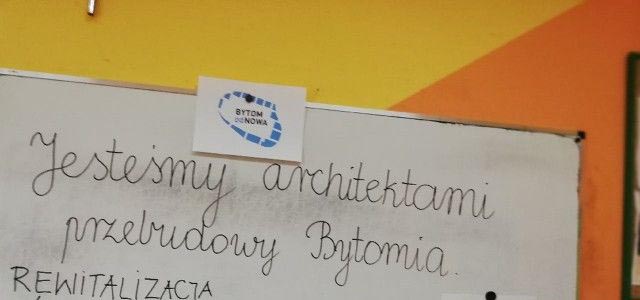 BYTOM
odNOWA
Jesteśmy architektami
przebudowy Bytomia.
REWITALIZACJA